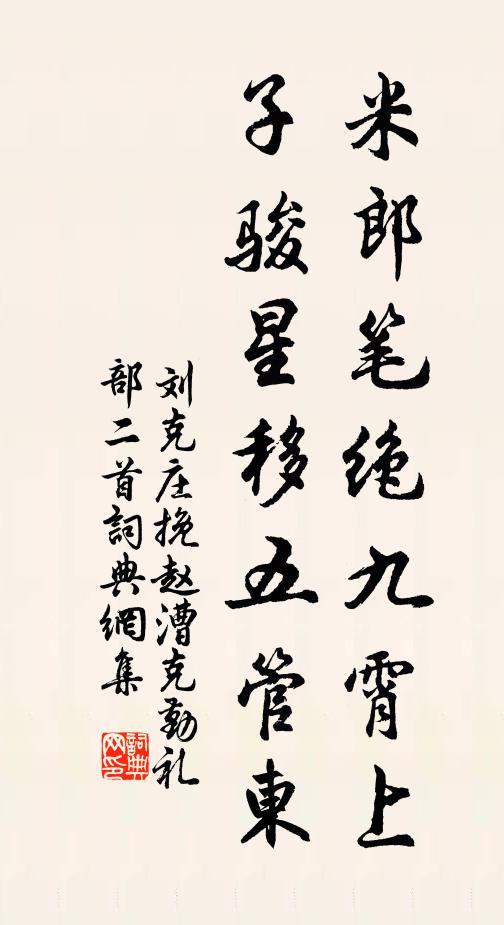 米郎笔绝九霄上
子骏星移五管東
刘克庄挽赵漕克勤礼
部二首詞典網集
詞典
网印